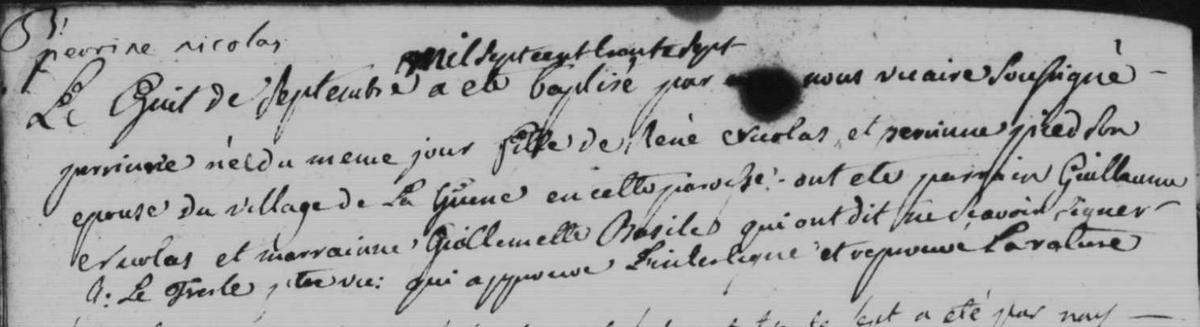 perrine nicolas
mil sept cent trente sept
Le huit de septembre a ete baptisé par nous vicaire soussigné
perrinne née du meme jour fille de René nicolas et perrinne piedson
epouse du village de La Guene en cette paroisse ont ete parrain Guillaume
nicolas et marrainne Guillemette Basile qui ont dit ne scavoir signer
Le ptre vic: qui approuve l'interligne et reprouve La rature
est a eté par nous